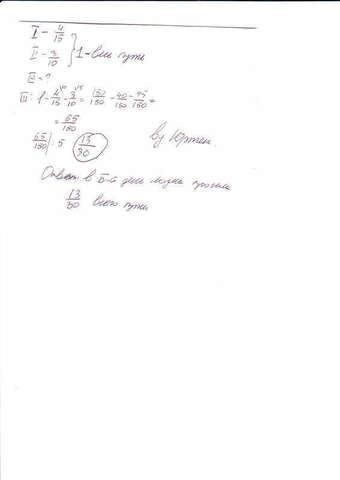 I - 4/15
II - 3/10 } 1 - весь путь
III - ?
III: 1 - 4/15 - 3/10 = 150/150 - 40/150 - 45/150 =
= 65/150
65/150 | : 5 13/30
by Юртен
Ответ: в III-й день прошли
13/30 всего пути